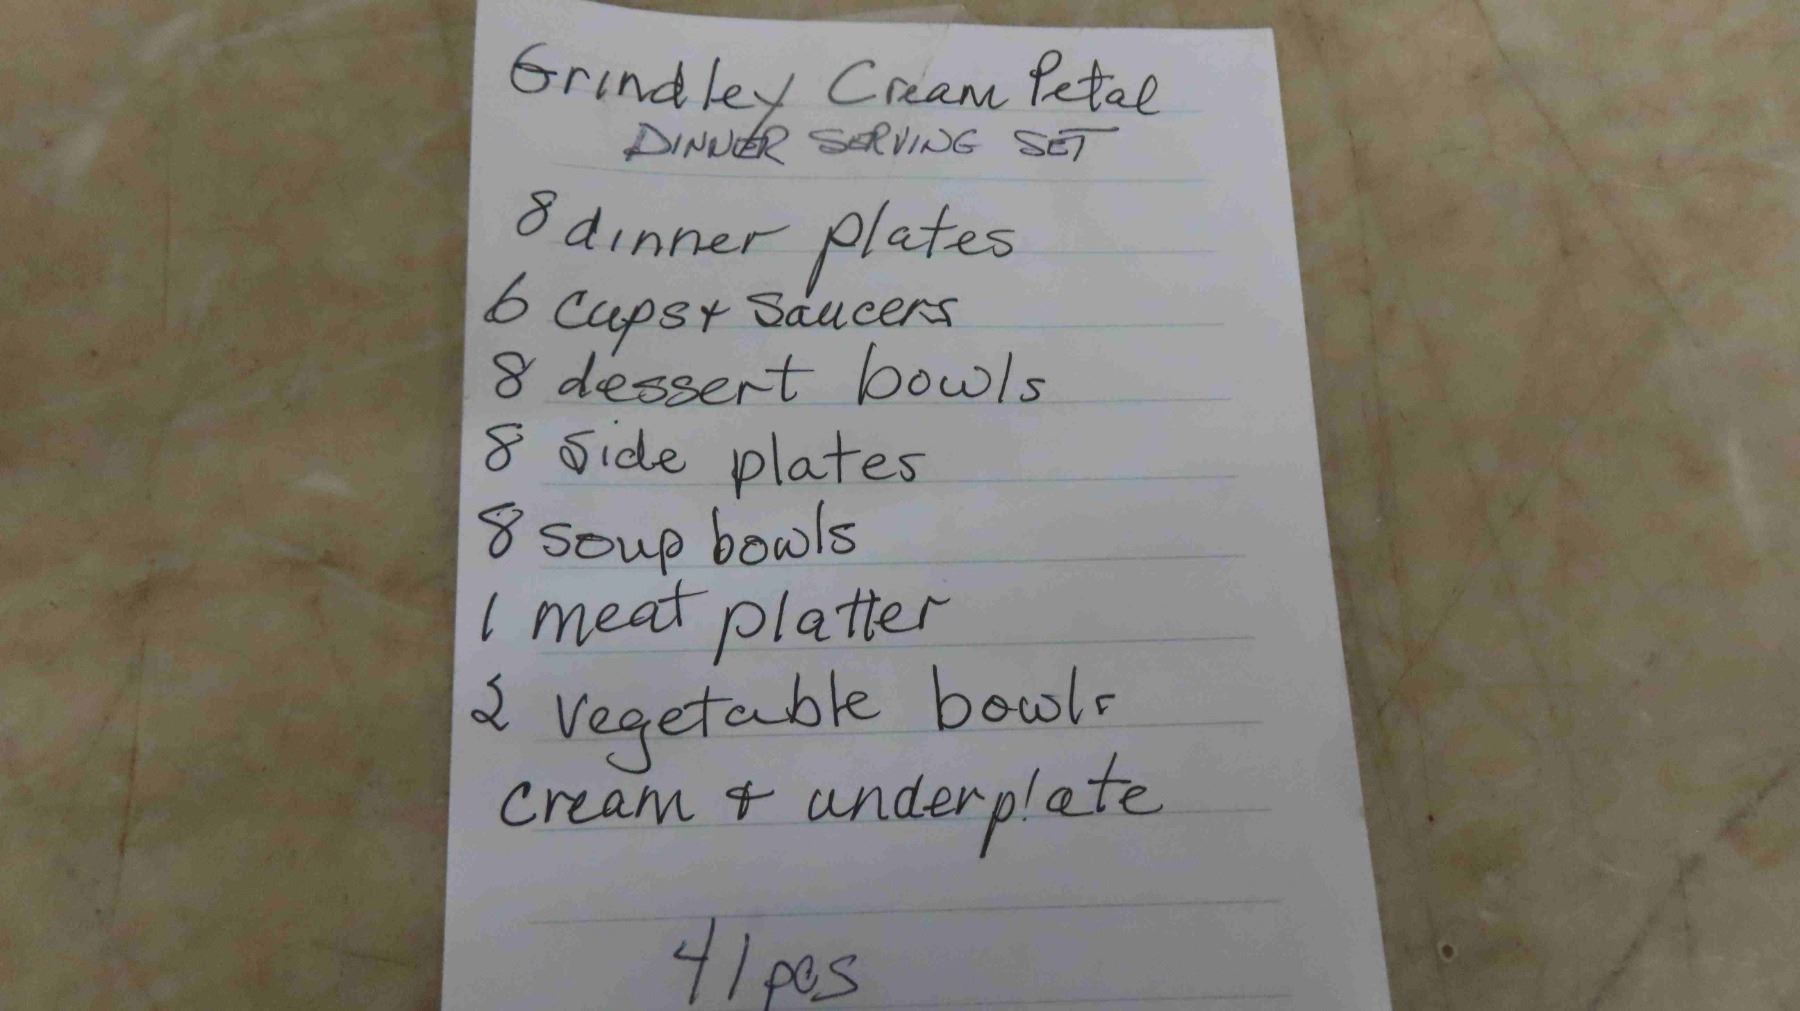 Grindley Cream Petal
DINNER SERVING SET
8 dinner plates
6 cups + saucers
8 dessert bowls
8 side plates
8 soup bowls
1 meat platter
2 vegetable bowls
cream & underplate
41 pcs